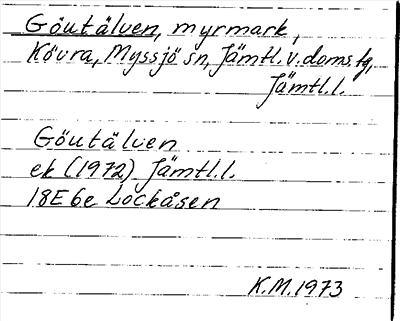 Göutälven, myrmark,
Kövra, Myssjö sn, Jämtl.v.doms tg,
Jämtl.l.
Göutälven
ek (1972) Jämtl.l.
18E6e Lockåsen
K.M.1973